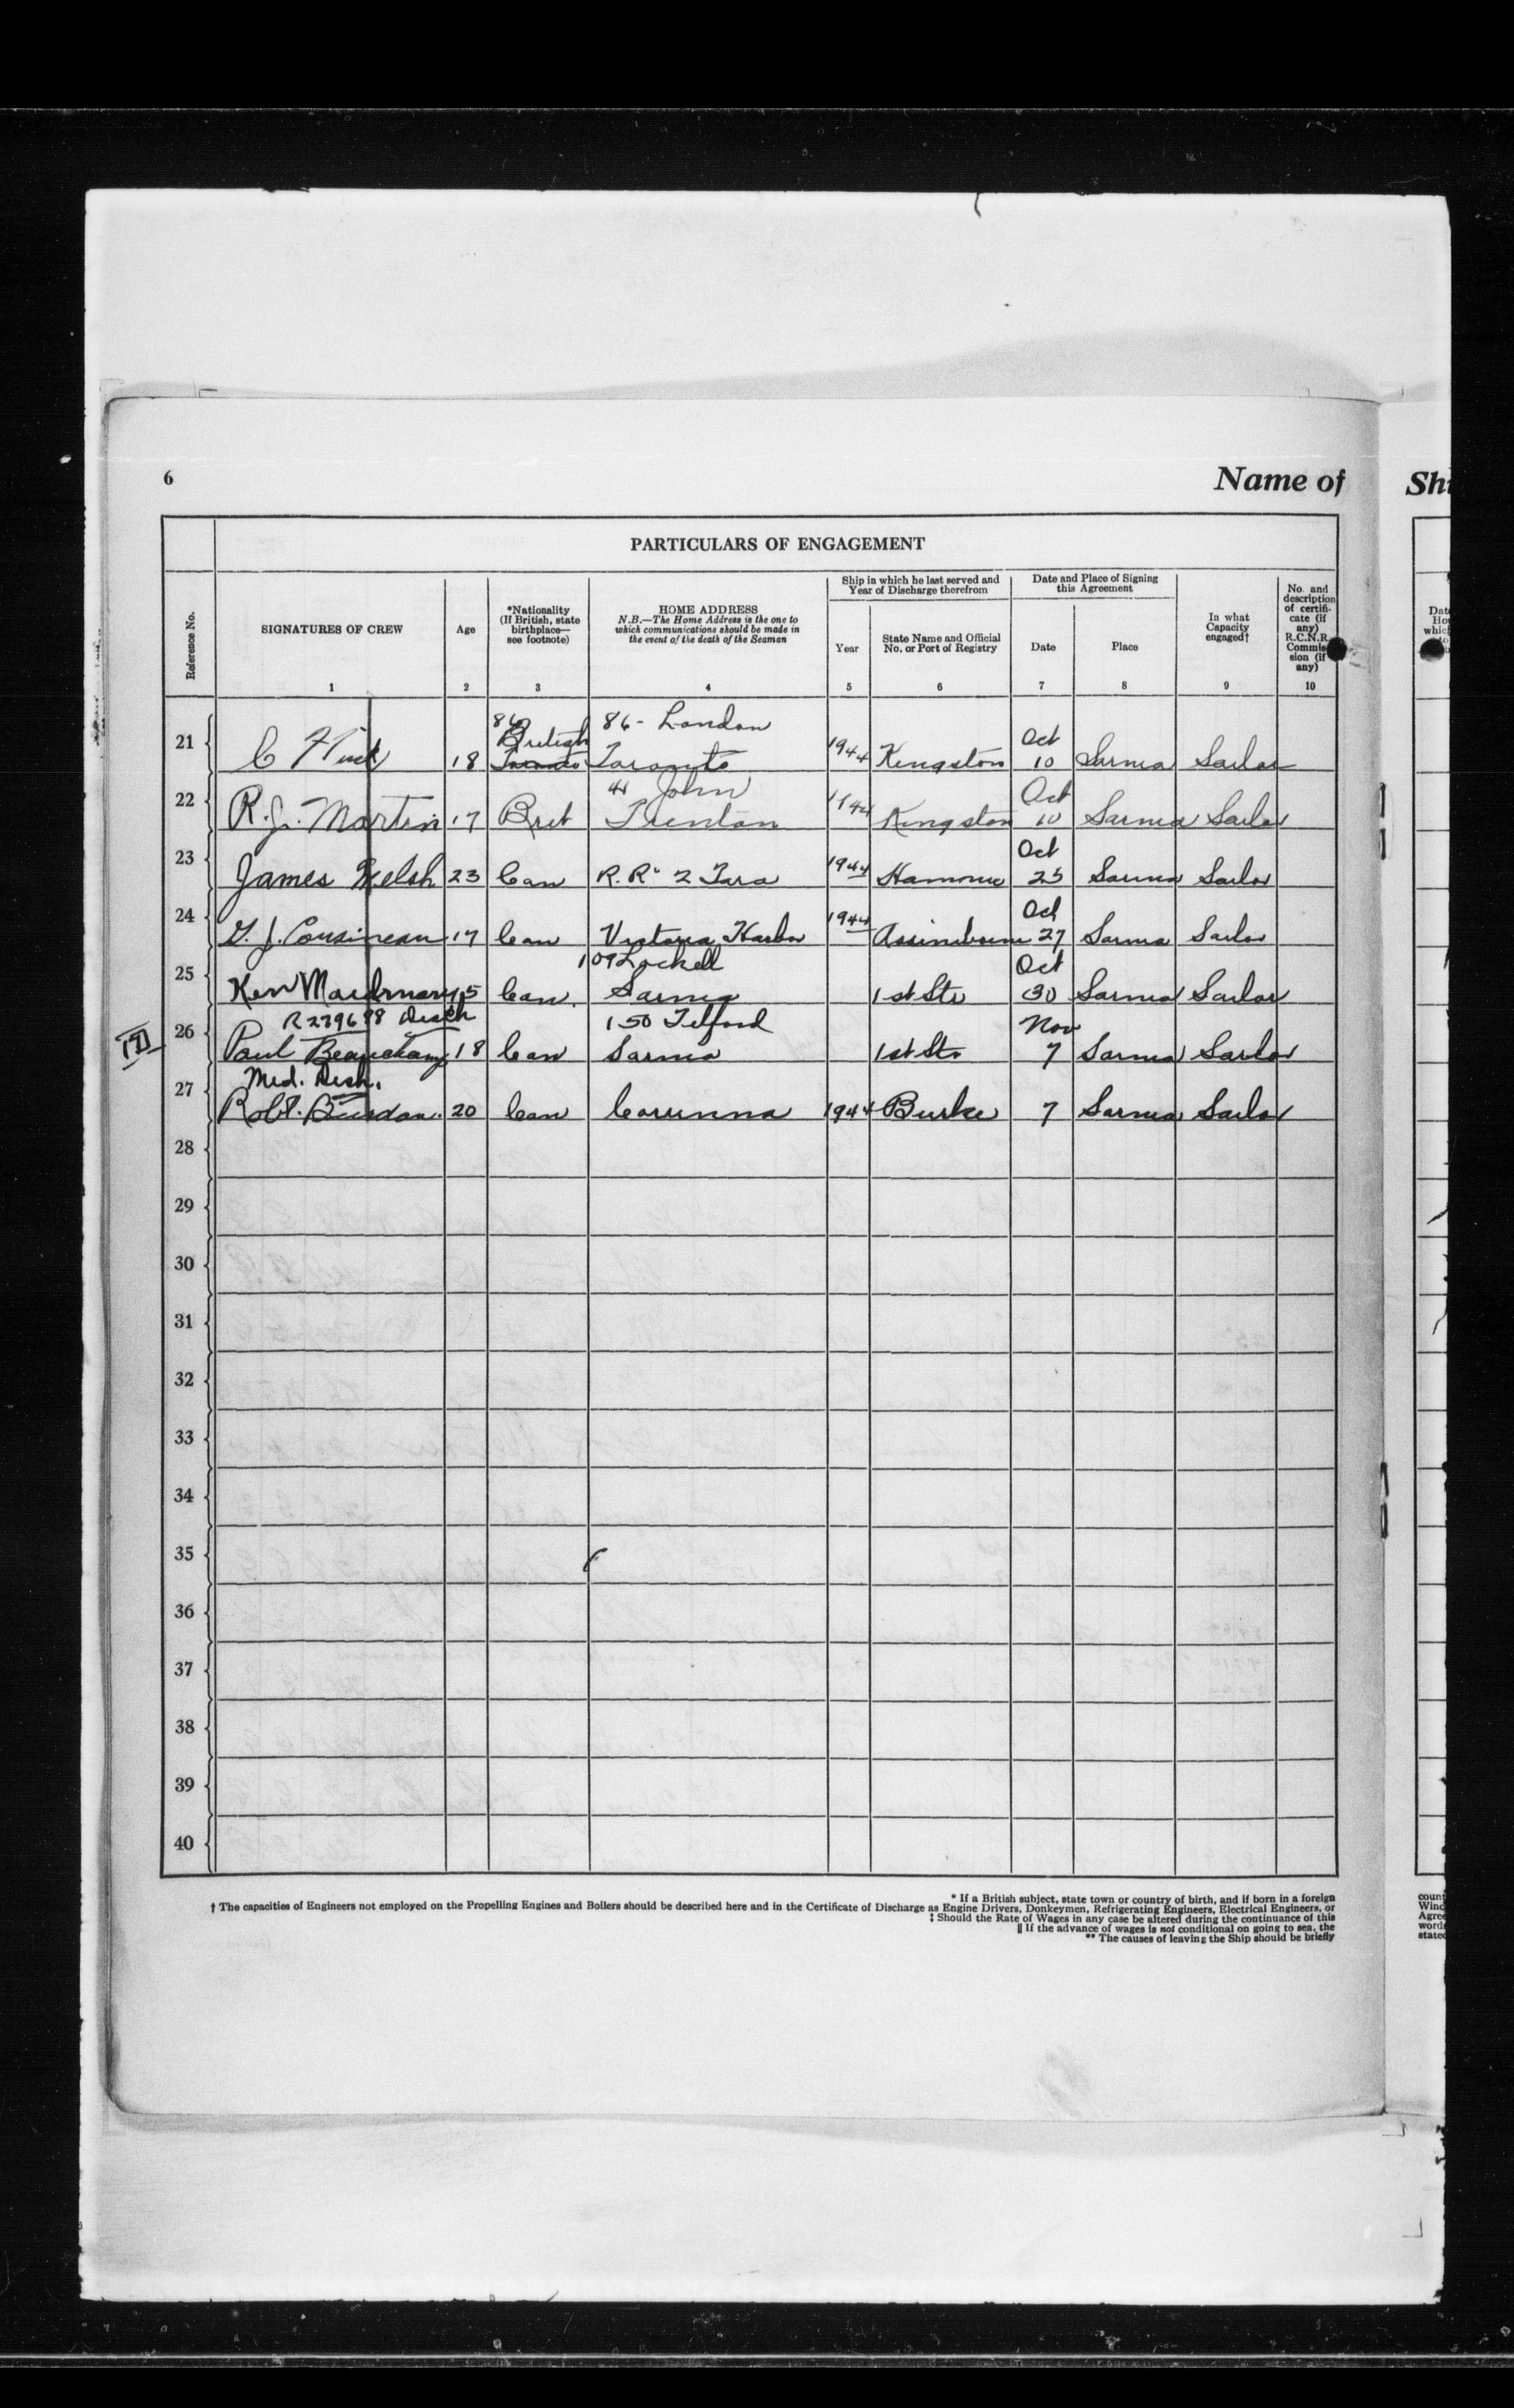 6
Name of
PARTICULARS OF ENGAGEMENT
Reference No.
SIGNATURES OF CREW
1
Age
2
*Nationality
(If British, state
birthplace—
see footnote)
3
HOME ADDRESS
N.B.—The Home Address is the one to
which communications should be made in
the event of the death of the Seaman
4
Ship in which he last served and
Year of Discharge therefrom
Year
5
State Name and Official
No. or Port of Registry
6
Date and Place of Signing
this Agreement
Date
7
Place
8
In what
Capacity
engaged†
9
No. and
description
of certifi-
cate (if
any)
R.C.N.R.
Commis-
sion (if
any)
10
86 British 86 - London Oct
21 C 18 Toronto Toronto 1944 Kingston 10 Sarnia Sailor
41 John Oct
22 R. J. Martin 17 Brit Trenton 1944 Kingston 10 Sarnia Sailor
Oct
23 James Welsh 23 Can R. R. 2 Tara 1944 25 Sarnia Sailor
Oct
24 G. J. Cousineau 17 Can Victoria Harbor 1944 Assiniboine 27 Sarnia Sailor
109 Lockell Oct
25 Ken 15 Can. Sarnia 1st Str 30 Sarnia Sailor
R279688 Disch 150 Telford Nov
26 Paul Beauchamp 18 Can Sarnia 1st Str 7 Sarnia Sailor
Med. Disch.
27 Robt. 20 Can Corunna 1944 Burke 7 Sarnia Sailor
28
29
30
31
32
33
34
35
36
37
38
39
40
* If a British subject, state town or country of birth, and if born in a foreign
† The capacities of Engineers not employed on the Propelling Engines and Boilers should be described here and in the Certificate of Discharge as Engine Drivers, Donkeymen, Refrigerating Engineers, Electrical Engineers, or
‡ Should the Rate of Wages in any case be altered during the continuance of this
‖ If the advance of wages is not conditional on going to sea, the
** The causes of leaving the Ship should be briefly